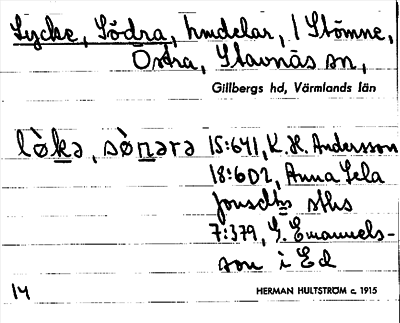 Lycke, Södra, hmdelar, i Stömne,
Östra, Stavnäs sn,
Gillbergs hd, Värmlands län
lò̱ka, sònara 15:641, K. H. Andersson
18:602, Anna Lela
Jonsdtts sths
7:379, G. Emanuels-
son i Ed
14 HERMAN HULTSTRÖM c. 1915